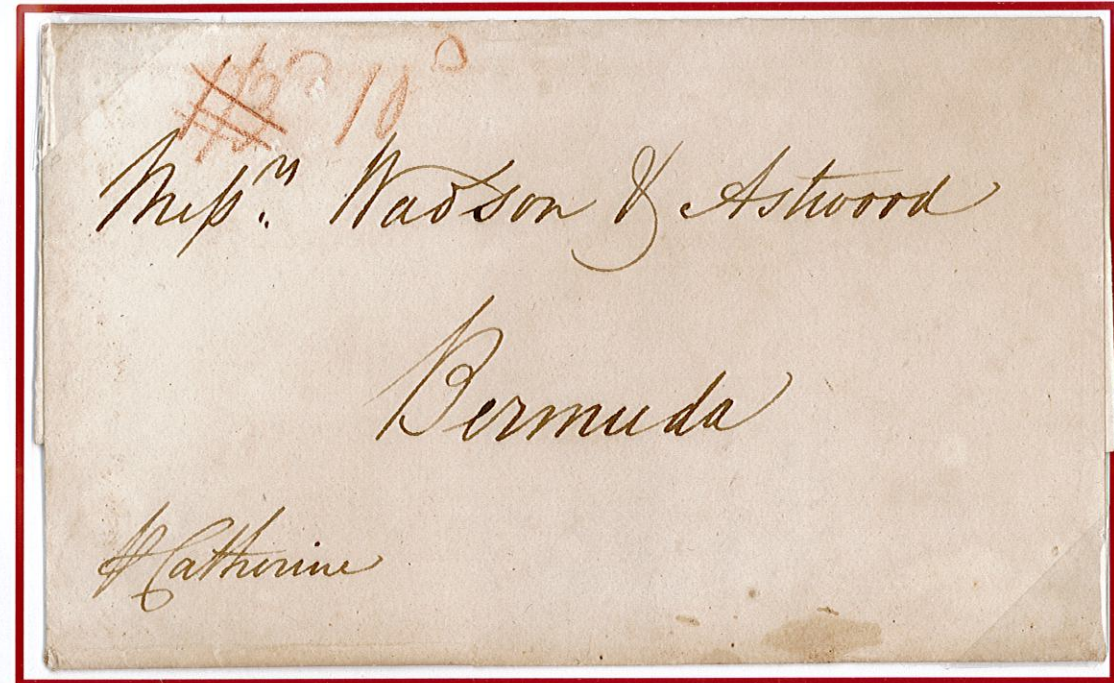 10ᴰ
Messʳˢ. Wadson & Astwood
Bermuda
⅌ Catherine